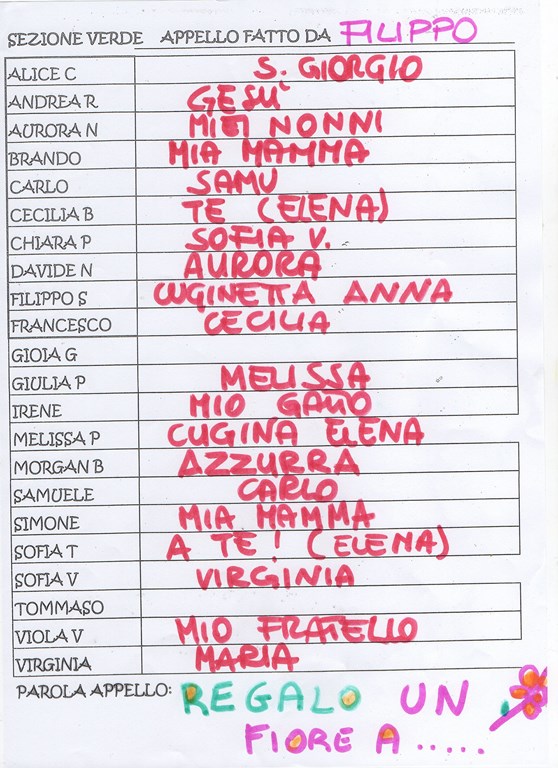 SEZIONE VERDE APPELLO FATTO DA FILIPPO
ALICE C S. GIORGIO
ANDREA R GESU'
AURORA N MIEI NONNI
BRANDO MIA MAMMA
CARLO SAMU
CECILIA B TE (ELENA)
CHIARA P SOFIA V.
DAVIDE N AURORA
FILIPPO S CUGINETTA ANNA
FRANCESCO CECILIA
GIOIA G
GIULIA P MELISSA
IRENE MIO GATTO
MELISSA P CUGINA ELENA
MORGAN B AZZURRA
SAMUELE CARLO
SIMONE MIA MAMMA
SOFIA T A TE! (ELENA)
SOFIA V VIRGINIA
TOMMASO
VIOLA V MIO FRATELLO
VIRGINIA MARIA
PAROLA APPELLO: REGALO UN
FIORE A .....